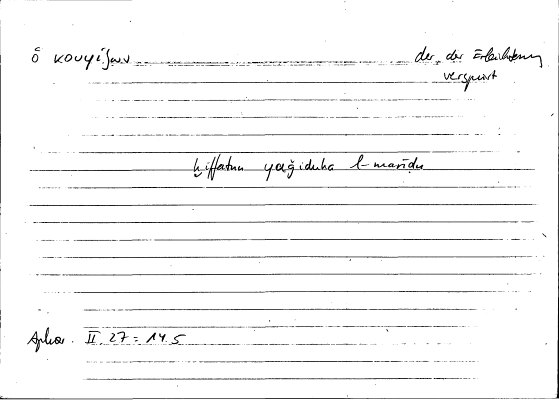 ὁ κουφίζων der, der Erleichterung
verspürt
ḫiffatun yaǧiduha l-marīḍu
Aphor. II 27 = 14.5